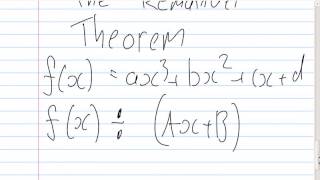 The Remainder
Theorem
f(x) = ax³+bx²+cx+d
f(x) ÷ (Ax+B)